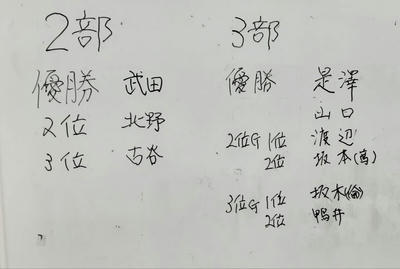 2部
優勝 武田
2位 北野
3位 古谷
3部
優勝 是澤
山口
2位G 1位 渡辺
2位 坂本(高)
3位G 1位 坂本(倫)
2位 鴨井